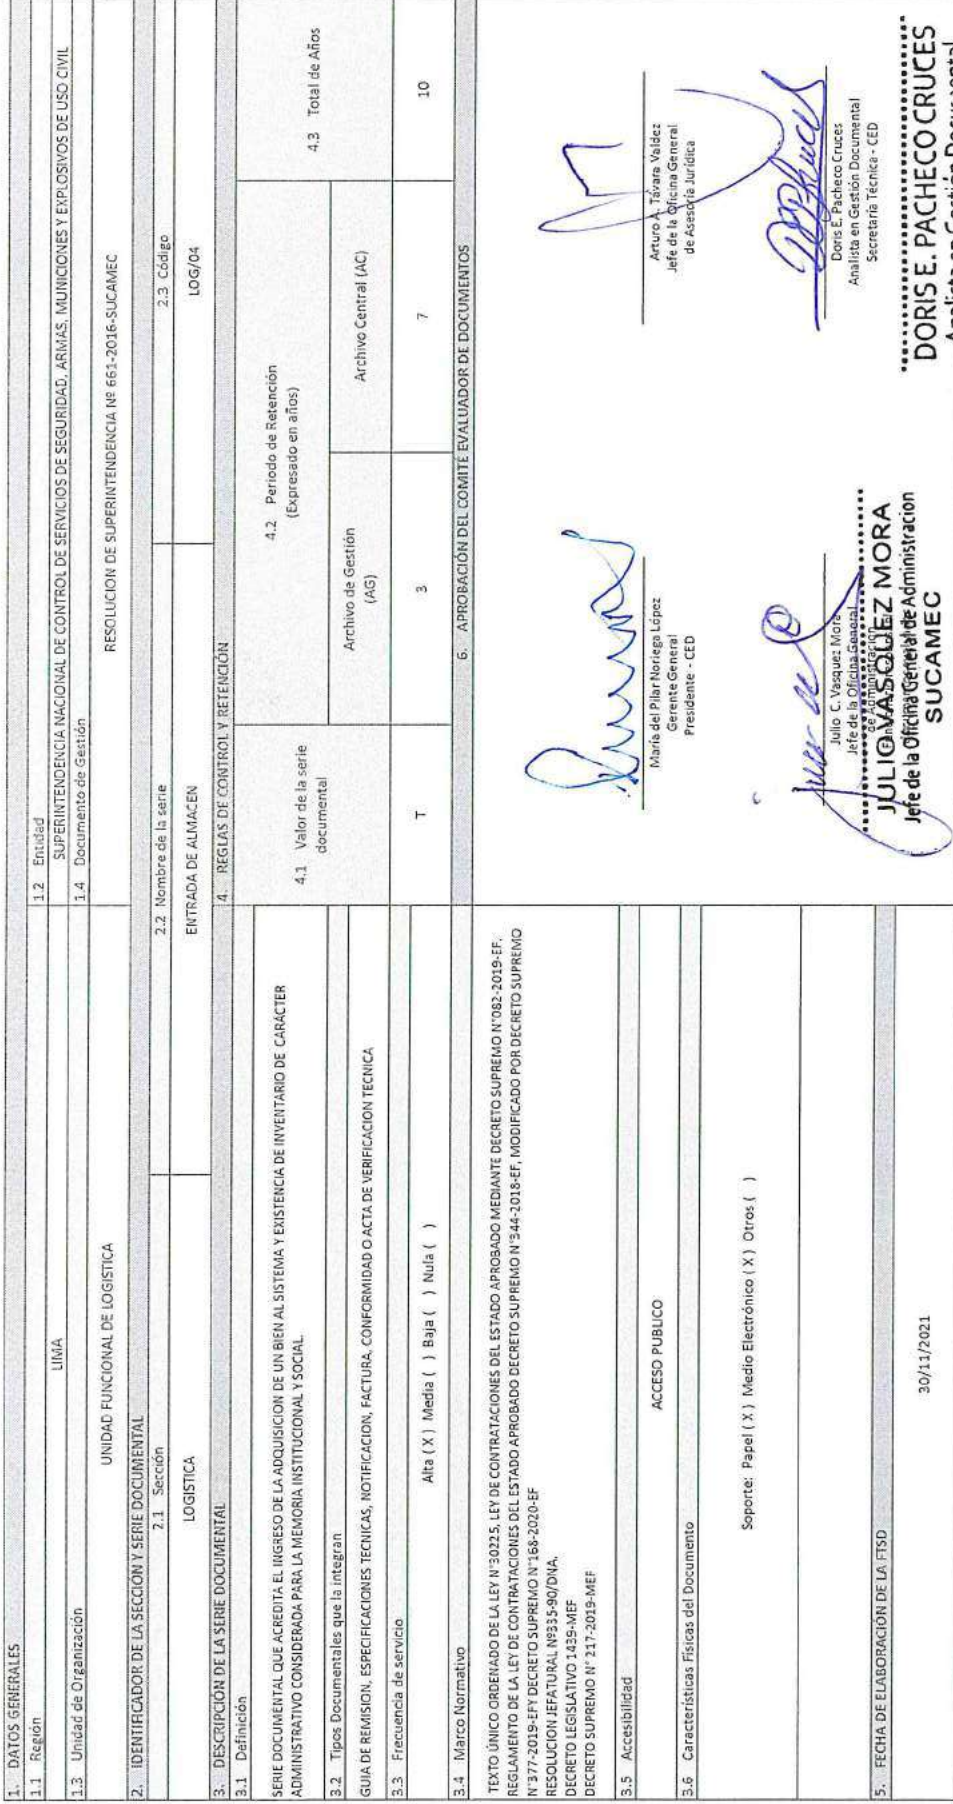 1. DATOS GENERALES
1.1 Región
LIMA
1.2 Entidad
SUPERINTENDENCIA NACIONAL DE CONTROL DE SERVICIOS DE SEGURIDAD, ARMAS, MUNICIONES Y EXPLOSIVOS DE USO CIVIL
1.3 Unidad de Organización
UNIDAD FUNCIONAL DE LOGISTICA
1.4 Documento de Gestión
RESOLUCION DE SUPERINTENDENCIA Nº 661-2016-SUCAMEC
2. IDENTIFICADOR DE LA SECCIÓN Y SERIE DOCUMENTAL
2.1 Sección
2.2 Nombre de la serie
2.3 Código
LOGISTICA
ENTRADA DE ALMACEN
LOG/04
3. DESCRIPCIÓN DE LA SERIE DOCUMENTAL
3.1 Definición
SERIE DOCUMENTAL QUE ACREDITA EL INGRESO DE LA ADQUISICION DE UN BIEN AL SISTEMA Y EXISTENCIA DE INVENTARIO DE CARÁCTER
ADMINISTRATIVO CONSIDERADA PARA LA MEMORIA INSTITUCIONAL Y SOCIAL.
3.2 Tipos Documentales que la integran
GUIA DE REMISION, ESPECIFICACIONES TECNICAS, NOTIFICACION, FACTURA, CONFORMIDAD O ACTA DE VERIFICACION TECNICA
3.3 Frecuencia de servicio
Alta ( X ) Media ( ) Baja ( ) Nula ( )
3.4 Marco Normativo
TEXTO ÚNICO ORDENADO DE LA LEY N°30225, LEY DE CONTRATACIONES DEL ESTADO APROBADO MEDIANTE DECRETO SUPREMO N°082-2019-EF.
REGLAMENTO DE LA LEY DE CONTRATACIONES DEL ESTADO APROBADO DECRETO SUPREMO N°344-2018-EF, MODIFICADO POR DECRETO SUPREMO
N°377-2019-EF Y DECRETO SUPREMO N°168-2020-EF
RESOLUCION JEFATURAL Nº335-90/DNA.
DECRETO LEGISLATIVO 1439-MEF
DECRETO SUPREMO N° 217-2019-MEF
3.5 Accesibilidad
ACCESO PUBLICO
3.6 Características Físicas del Documento
Soporte: Papel ( X ) Medio Electrónico ( X ) Otros ( )
5. FECHA DE ELABORACIÓN DE LA FTSD
30/11/2021
4. REGLAS DE CONTROL Y RETENCIÓN
4.1 Valor de la serie
documental
4.2 Periodo de Retención
(Expresado en años)
4.3 Total de Años
Archivo de Gestión
(AG)
Archivo Central (AC)
T
3
7
10
6. APROBACIÓN DEL COMITÉ EVALUADOR DE DOCUMENTOS
María del Pilar Noriega López
Gerente General
Presidente - CED
Arturo A. Távara Valdez
Jefe de la Oficina General
de Asesoría Jurídica
Julio C. Vasquez Mora
Jefe de la Oficina General
de Administración
JULIO VASQUEZ MORA
Jefe de la Oficina General de Administracion
SUCAMEC
Doris E. Pacheco Cruces
Analista en Gestión Documental
Secretaría Técnica - CED
DORIS E. PACHECO CRUCES
Analista en Gestión Documental